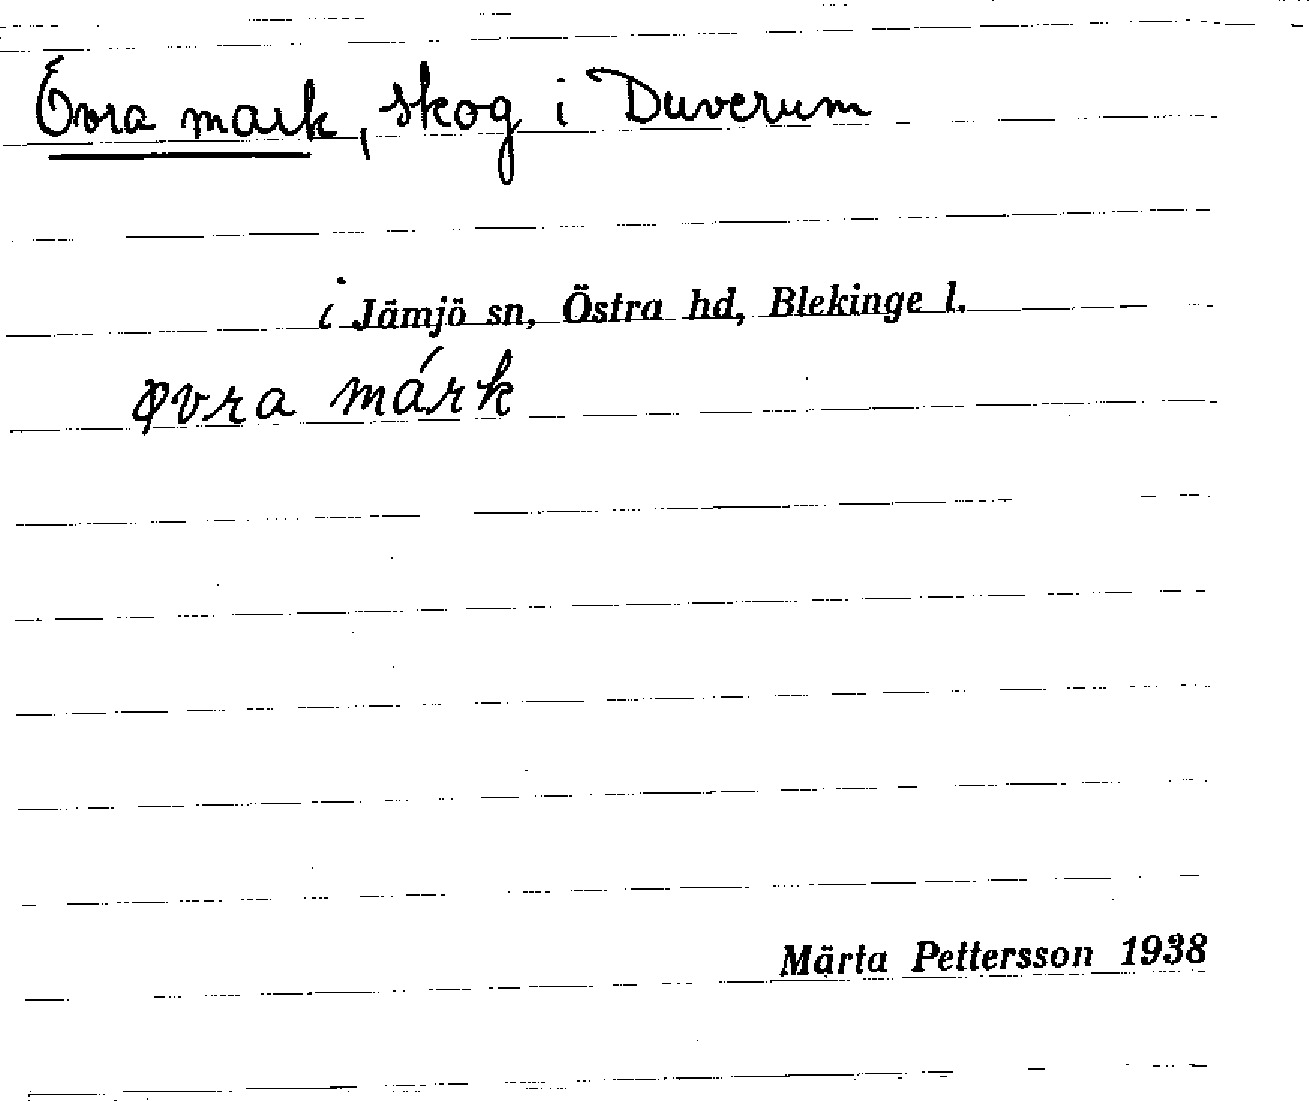 Övra mark, skog i Duverum
i Jämjö sn, Östra hd, Blekinge l.
øvra márk
Märta Pettersson 1938